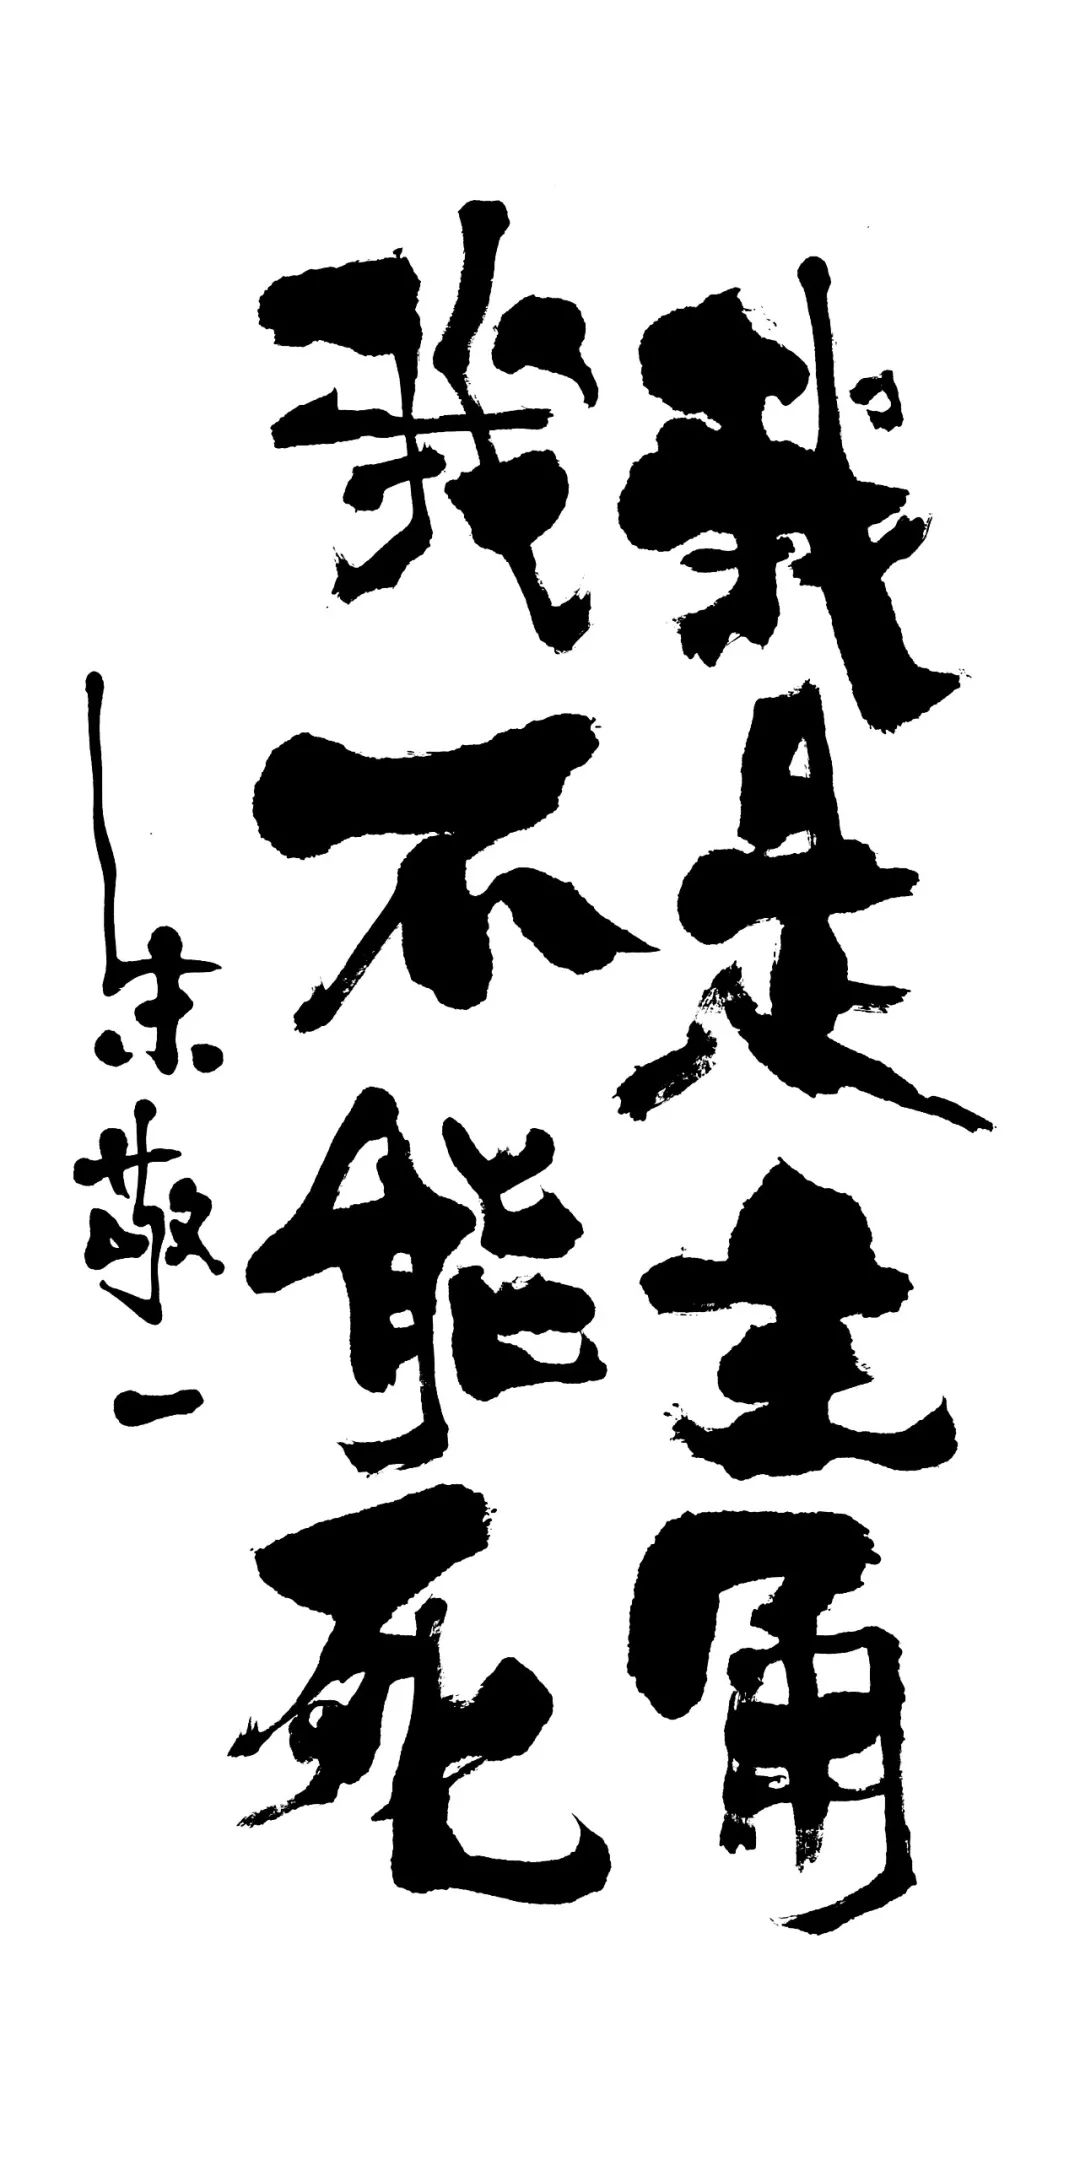 我是主角
我不能死
朱敬一